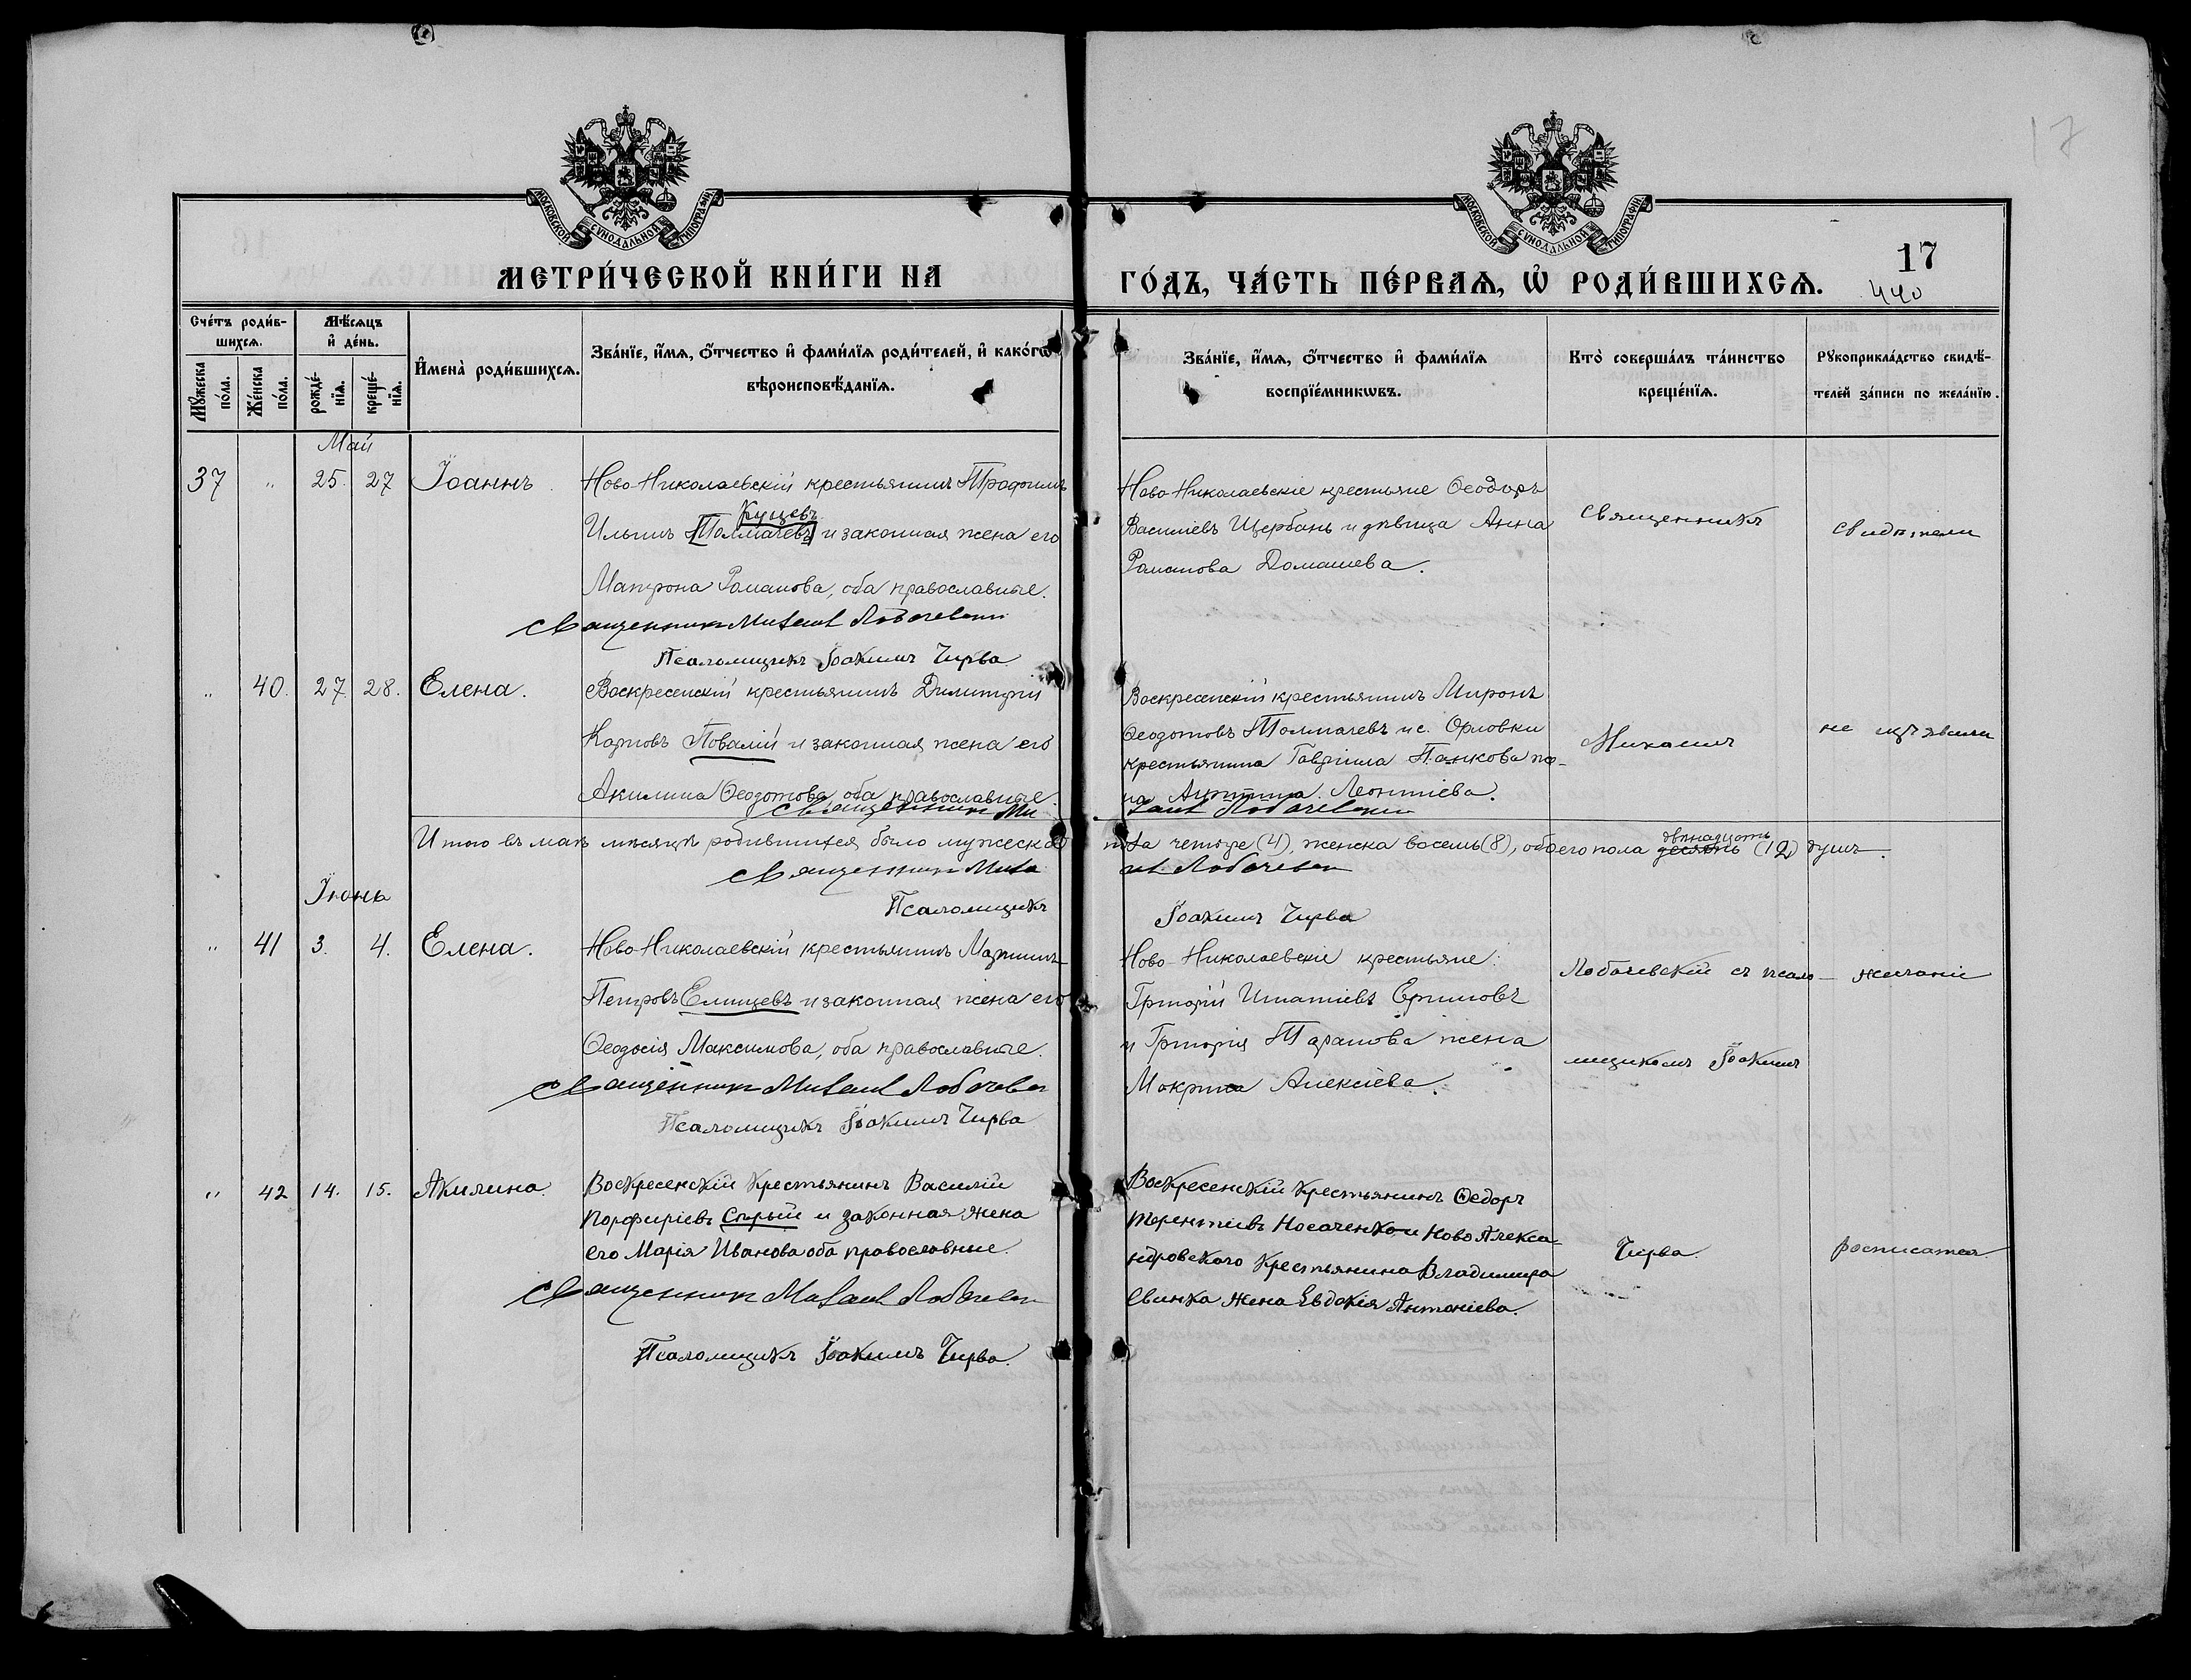 17
МОСКОВСКОЙ СѴНОДАЛЬНОЙ ТИПОГРАФІИ
МОСКОВСКОЙ СѴНОДАЛЬНОЙ ТИПОГРАФІИ
МЕТРИ́ЧЕСКОЙ КНИ́ГИ НА
ГО́ДЪ, ЧА́СТЬ ПЕ́РВАѦ, Ѡ҆ РОДИ́ВШИХСѦ.
17
440
Сче́тъ роди́в-
шихсѧ.
Мѣ́сѧцъ
и҆ де́нь.
Мꙋ́жеска
по́ла.
Же́нска
по́ла.
рожде́-
нїѧ.
креще́-
нїѧ.
И҆мена̀ роди́вшихсѧ.
Зва́нїе, и҆́мѧ, ѻ҆́тчество и҆ фами́лїѧ роди́телей, и҆ како́гѡ
вѣроисповѣ́данїѧ.
Зва́нїе, и҆́мѧ, ѻ҆́тчество и҆ фами́лїѧ
воспрїе́мникѡвъ.
Кто̀ соверша́лъ та́инство
креще́нїѧ.
Рꙋкоприкла́дство свидѣ́-
телей за́писи по жела́нїю.
Май
37 " 25. 27 Іоаннъ.
Ново-Николаевскій крестьянинъ Трофимъ
Кущевъ
Ильинъ [Толмачевъ] и законная жена его
Матрона Романова, оба православные.
Священникъ Михаил Лобачевскій
Псаломщикъ Іоакимъ Чирва
Ново-Николаевскіе крестьяне Ѳеодоръ
Василіевъ Щербань и дѣвица Анна
Романова Домашева.
Священникъ
Свидѣтели
" 40. 27. 28. Елена.
Воскресенскій крестьянинъ Димитрій
Карповъ Повалій и законная жена его
Акилина Ѳеодотова, оба православные.
Священникъ Ми
Воскресенскій крестьянинъ Миронъ
Ѳеодотовъ Толмачевъ и с. Орловки
крестьянина Гавріила Панкова же-
на Леонтіева.
хаил Лобачевскій
Михаилъ
не изъявили
Итого въ маѣ мѣсяцѣ родившихся было мужеска
пола четыре (4), женска восемь (8), обоего пола десять (12) душъ.
двѣнадцать
Священникъ Миха
ил Лобачевск
Псаломщикъ
Іоакимъ Чирва
Іюнь
" 41 3. 4. Елена.
Ново-Николаевскій крестьянинъ Мартинъ
Петровъ Елицевъ и законная жена его
Ѳеодосія Максимова, оба православные.
Священникъ Михаил Лобачевск
Псаломщикъ Іоакимъ Чирва
Ново-Николаевскіе крестьяне:
Григорій Игнатіевъ Ериповъ
и Григорія Таранова жена
Макрина Алексіева.
Лобачевскій съ псало-
мщикомъ Іоакимъ
желаніе
" 42 14. 15. Акилина.
Воскресенскій крестьянинъ Василій
Порфиріевъ Спрый и законная жена
его Марія Иванова оба православные.
Священникъ Михаил Лобачевск
Псаломщикъ Іоакимъ Чирва.
Воскресенскій крестьянинъ Ѳедоръ
Терентіевъ Носаченко и Ново Алекса-
ндровского крестьянина Владимира
Свинка жена Евдокія Антоніева.
Чирва.
росписатся.